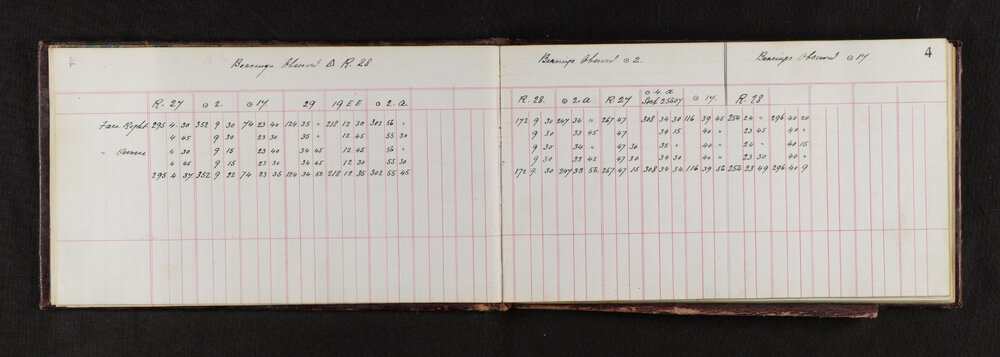 Bearings Observed △ R. 28
R. 27 ⊙ 2. ⊙ 17. 29 19 E E ⊙ 2. a.
Face Right 295 4 30 352 9 30 74 23 40 124 35 " 218 12 30 302 56 "
4 45 9 30 23 30 35 " 12 45 55 30
" Reverse 4 30 9 15 23 40 34 45 12 45 56 "
4 45 9 15 23 30 34 45 12 30 55 30
295 4 37 352 9 22 74 23 35 124 34 52 218 12 35 302 55 45
Bearings Observed ⊙ 2.
R. 28. ⊙ 2. a R 27 ⊙ 4. a 25607 ⊙ 17.
172 9 30 247 34 " 267 47 308 34 30 116 39 45
9 30 33 45 47 34 15 40 "
9 30 34 " 47 30 35 " 40 "
9 30 33 45 47 30 34 30 40 "
172 9 30 247 33 56 267 47 15 308 34 34 116 39 56
4
Bearings Observed ⊙ 17
R. 28
254 24 " 296 40 20
23 45 40 "
24 " 40 15
23 30 40 "
254 23 49 296 40 9